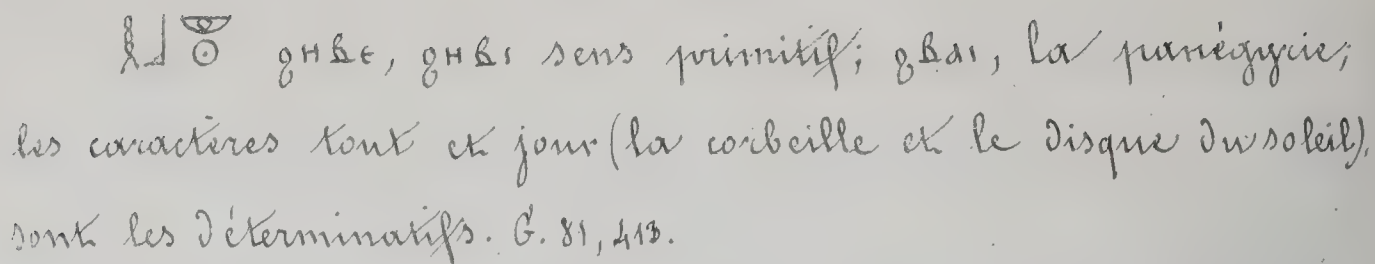 𓎛𓃀𓎱𓇳 ϩⲏⲃⲉ, ϩⲏⲃⲓ sens primitif; ϩⲃⲁⲓ, la panégyrie;
les caractères tout et jour (la corbeille et le disque du soleil),
sont les déterminatifs. G. 81, 413.